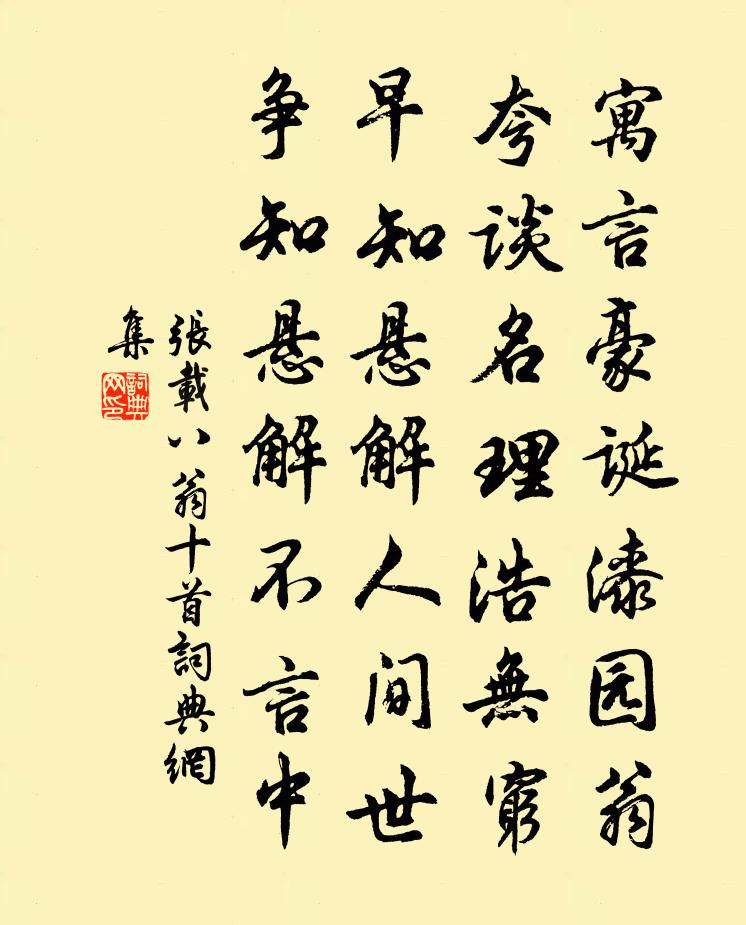 寓言豪诞漆园翁
夸談名理浩無窮
早知悬解人间世
争知悬解不言中
張載八翁十首詞典網
集
詞典
网印